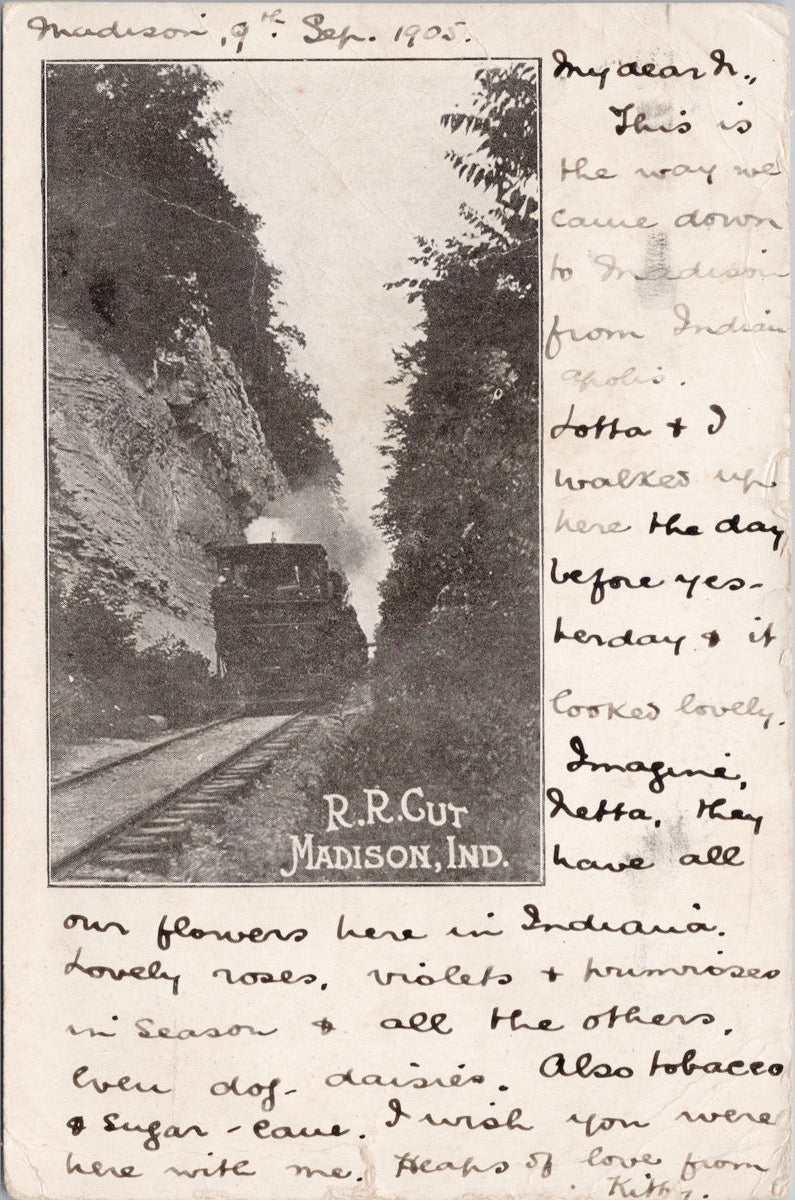 Madison, 9th. Sep. 1905.
My dear N.,
This is
the way we
came down
to Madison
from Indian
apolis.
Lotta + I
walked up
here the day
before yes-
terday + it
looked lovely.
Imagine,
Netta, they
have all
R.R.CUT
MADISON, IND.
our flowers here in Indiana.
Lovely roses, violets + primroses
in season + all the others,
even dog-daisies. Also tobacco
+ sugar-cane. I wish you were
here with me. Heaps of love from
Kitty.